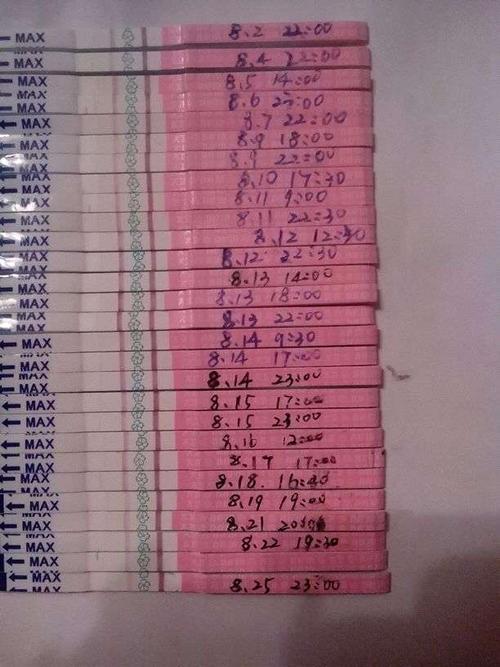 MAX 8.2 22:00
MAX 8.4 22:00
MAX 8.5 14:00
MAX 8.6 23:00
MAX 8.7 22:00
MAX 8.9 18:00
MAX 8.9 22:00
MAX 8.10 17:30
MAX 8.11 9:00
MAX 8.11 22:30
MAX 8.12 12:30
MAX 8.12 22:30
MAX 8.13 14:00
MAX 8.13 18:00
MAX 8.13 22:00
MAX 8.14 9:30
MAX 8.14 17:00
MAX 8.14 23:00
MAX 8.15 17:00
MAX 8.15 23:00
MAX 8.16 12:00
MAX 8.17 17:00
MAX 8.18 16:40
MAX 8.19 19:00
MAX 8.21
MAX 8.22 19:30
MAX
MAX 8.25 23:00